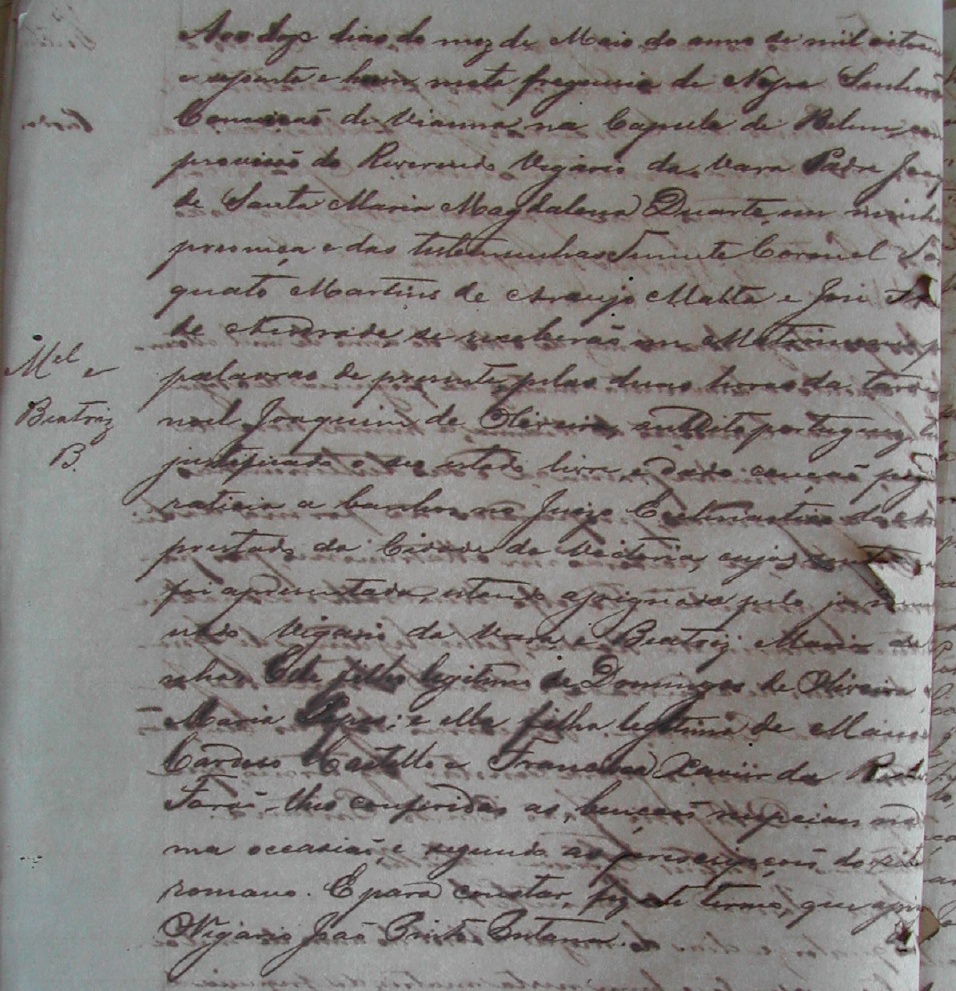 dias do mez de Maio do anno de mil oito
e setenta e hum, nesta freguesia de Nossa Senhora
Conceição de Vianna, na Capella de Belem, com
provisão do Reverendo Vigario da Vara Padre
de Santa Maria Magdalena Duarte, em minha
presença e das testemunhas Tenente Coronel
quato Martins de Araujo Malta e José
de Andrade, se receberão em Matrimonio p
palavras de presente, pelas duas horas da tar
Mel e
noel Joaquim de Oliveira, subdito portuguez,
Beatriz
B.
justificado o seu estado livre, e dado caução
ratoria a banhos no Juizo Ecclesiastico da
prestado da Cidade da Victoria, cuja
foi apresentada, estando assignada pelo já
Vigario da Vara, e Beatriz Maria de
Elle filho legitimo de Domingos de Oliveira
Maria e ella filha legitima de Manoel
Cardoso Castello e Francisca Xavier da
Farão-lhes conferidas as bençãos nupciaes na
ma occasião, e segundo as prescripções do rito
romano. E para constar, fiz este termo, que
Vigario João